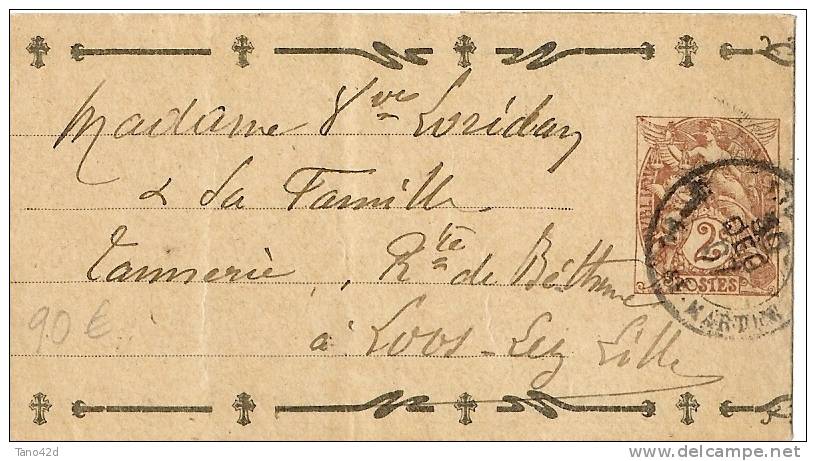 Madame Vve Loridan
& Sa Famille
Tannerie, Rte de Béthune
à Loos-Lez Lille
90 €
2
POSTES
30
DEC
07
MARTIN
Tano42d
delcampe.net